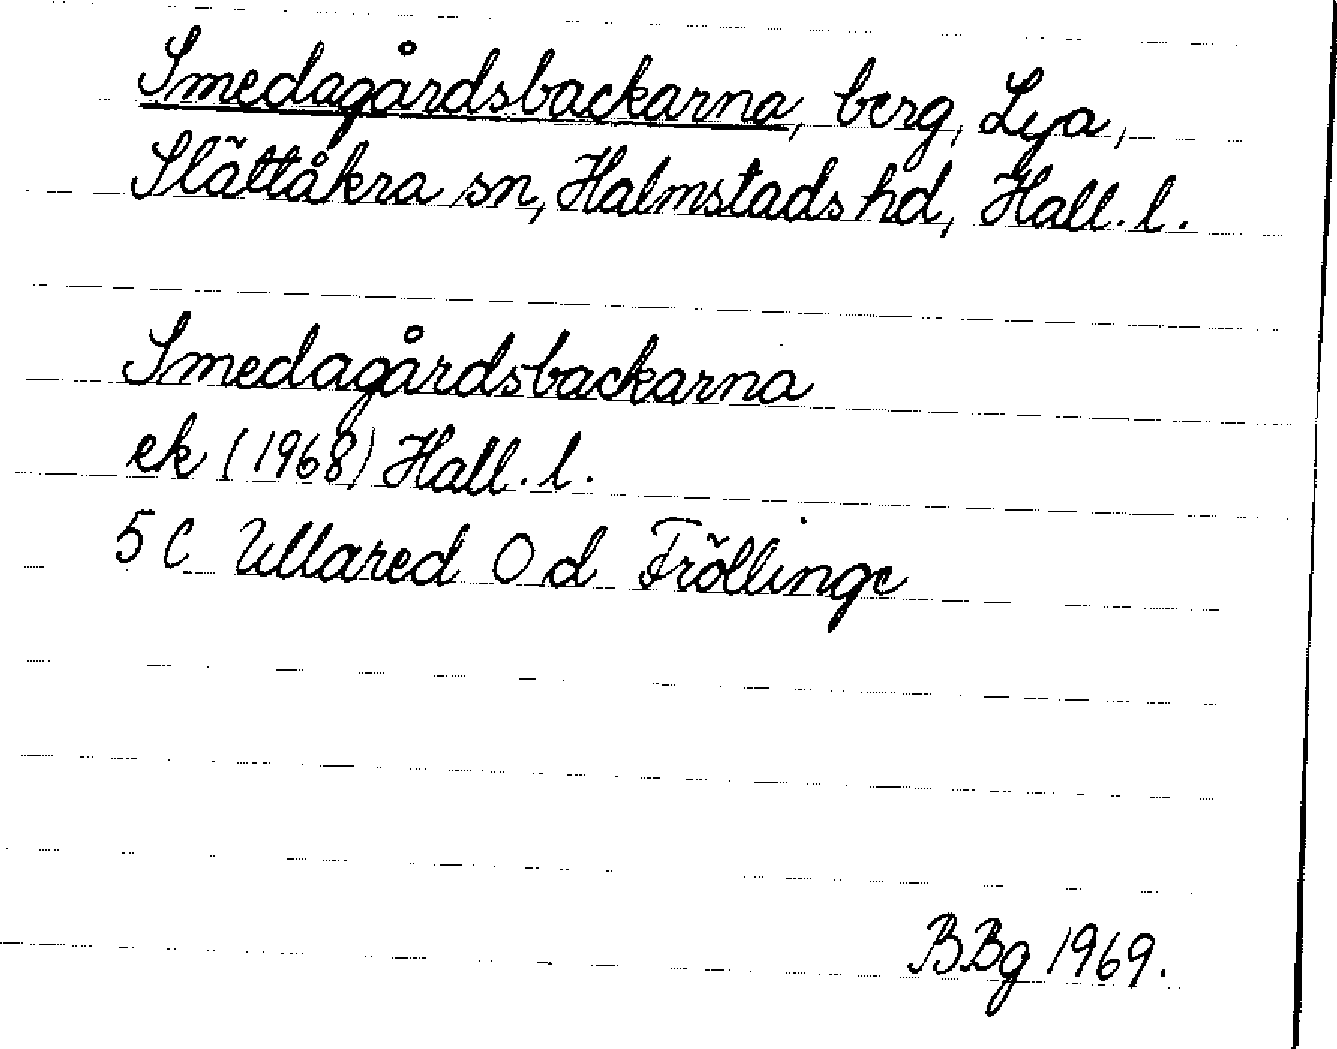 Smedagårdsbackarna, berg, Lya,
Slättåkra sn, Halmstads hd, Hall. l.
Smedagårdsbackarna
ek (1968) Hall. l.
5 C Ullared O d Fröllinge
BBg 1969.